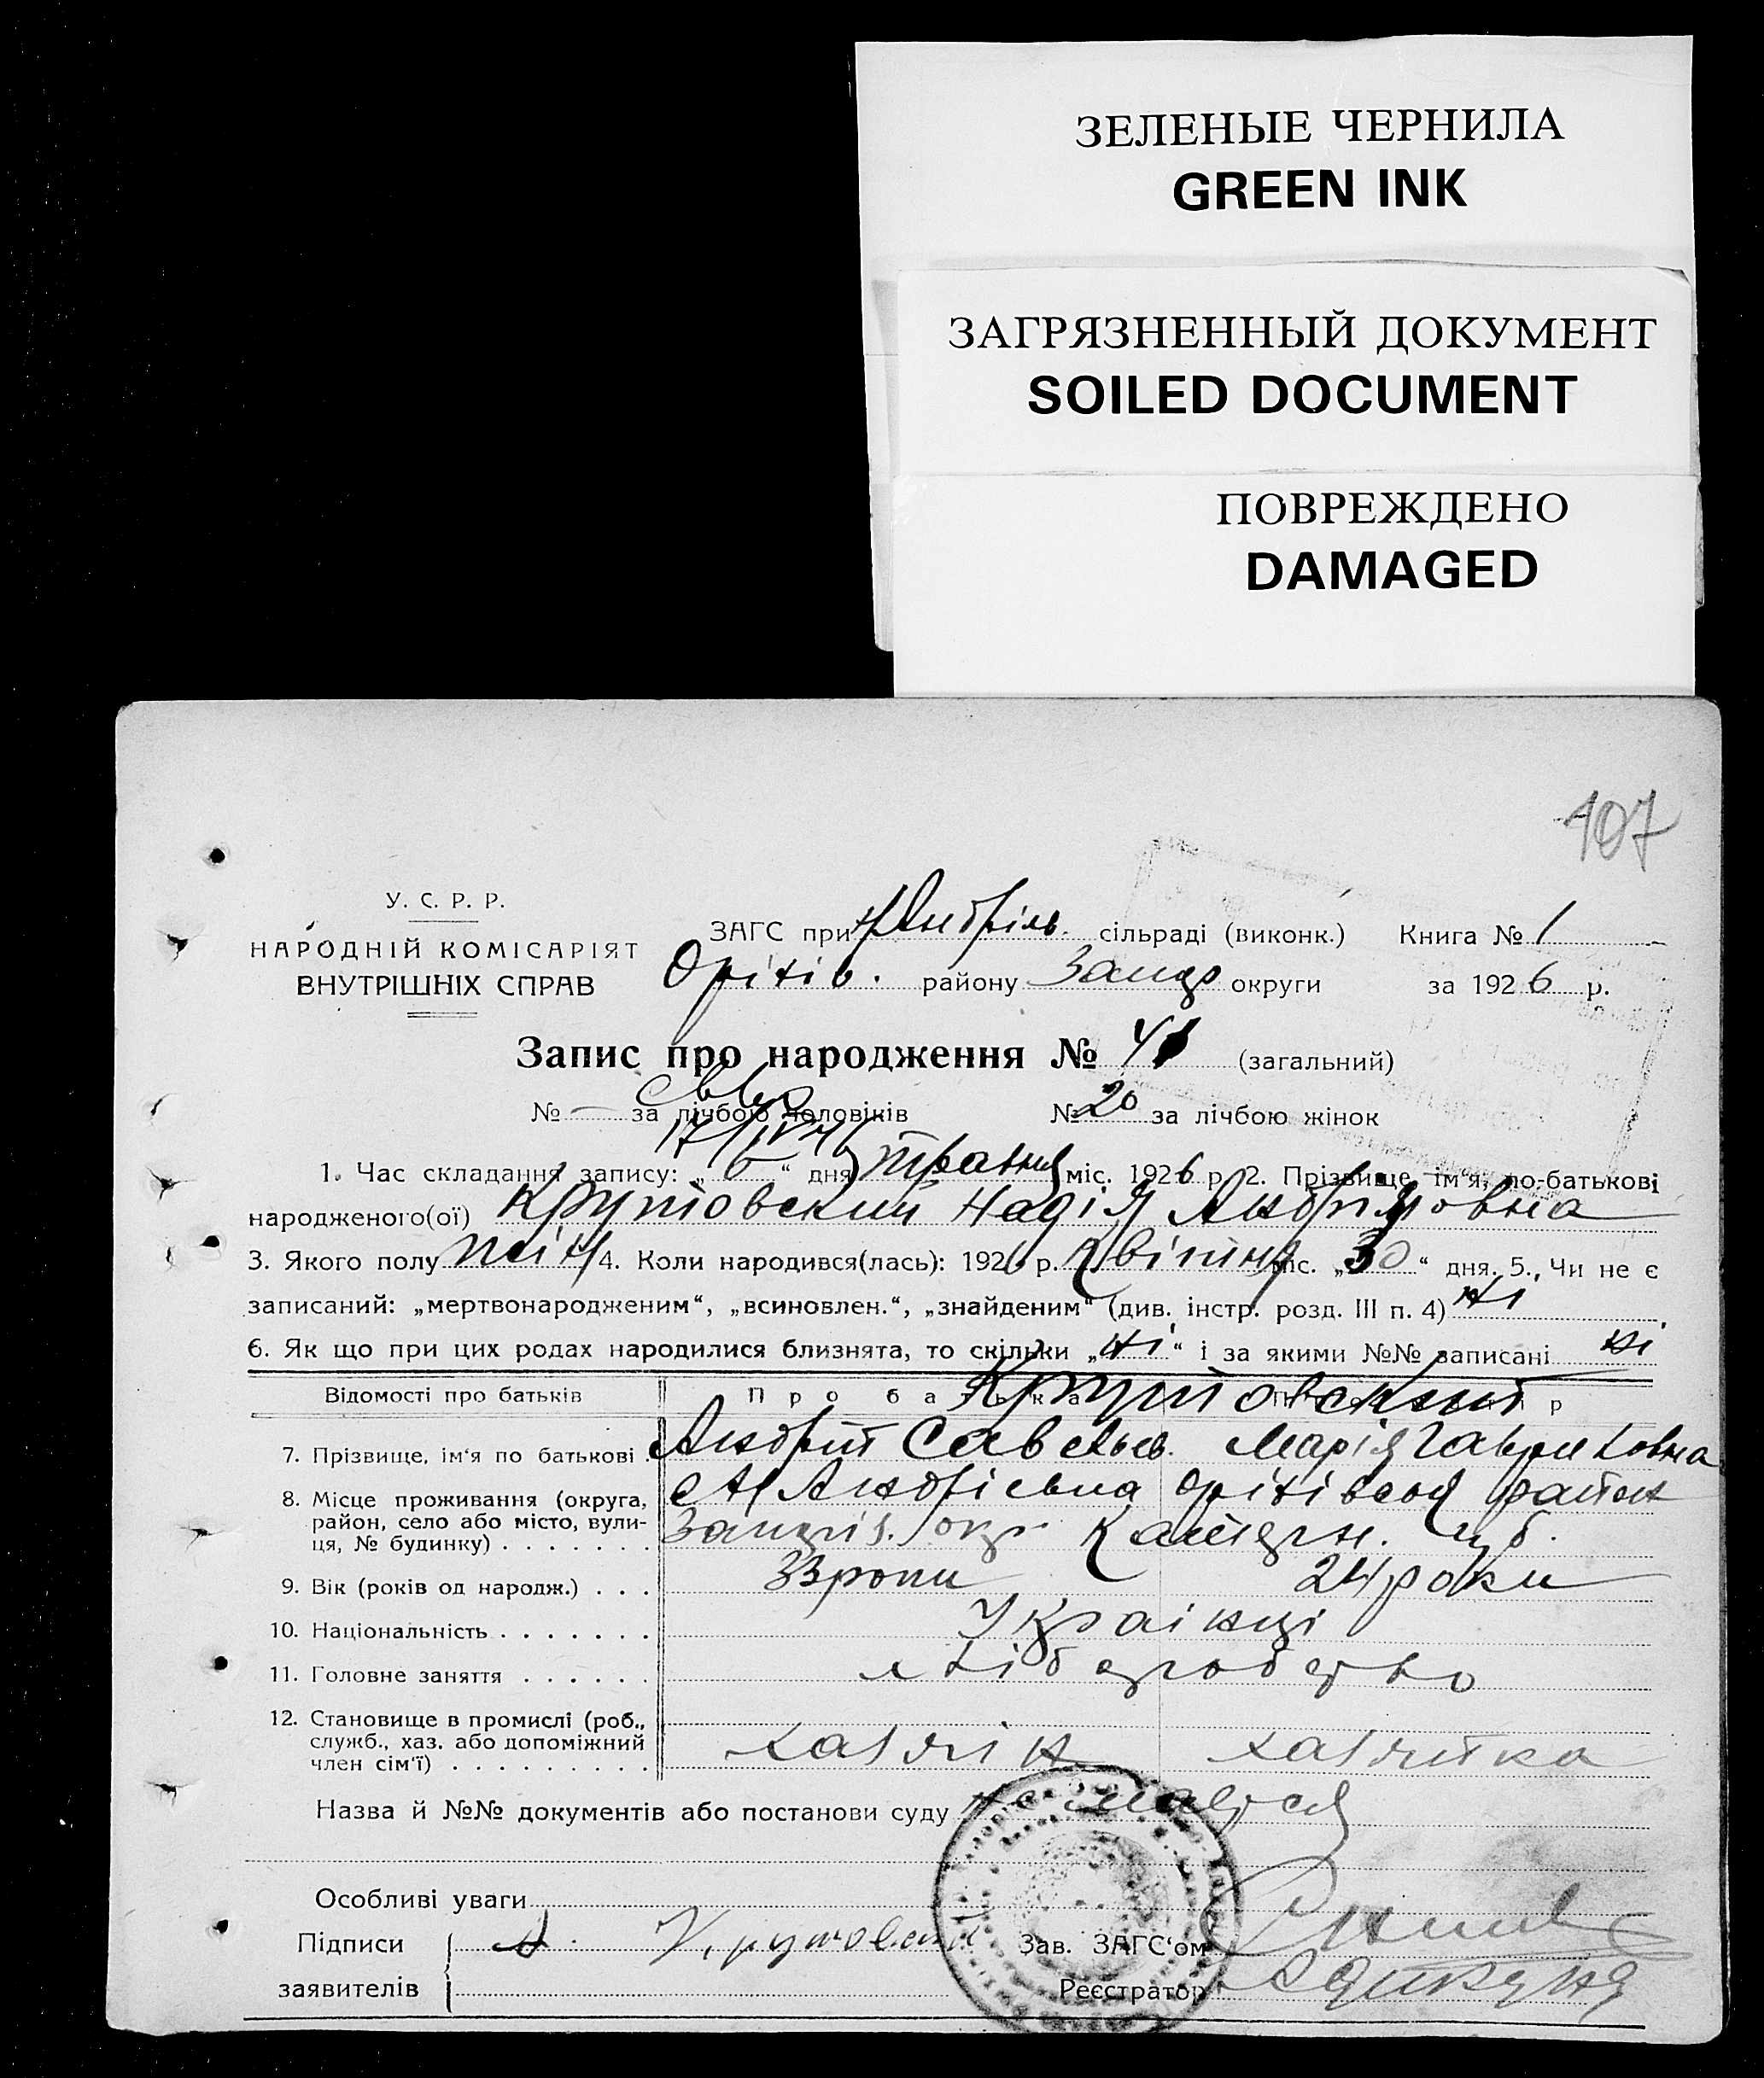 ЗЕЛЕНЫЕ ЧЕРНИЛА
GREEN INK
ЗАГРЯЗНЕННЫЙ ДОКУМЕНТ
SOILED DOCUMENT
ПОВРЕЖДЕНО
DAMAGED
107
У. С. Р. Р.
НАРОДНІЙ КОМІСАРІЯТ
ВНУТРІШНІХ СПРАВ
ЗАГС при сільраді (виконк.) Книга № 1
Оріхів. району Запор округи за 1926 р.
Запис про народження № 41 (загальний)
№ — за лічбою чоловіків № 20 за лічбою жінок
1. Час складання запису: „6“ дня травня міс. 1926 р. 2. Прізвище, ім'я, по-батькові
народженого(ої) Крутовский Надія Андріяовна
3. Якого полу жін 4. Коли народився(лась): 1926 р. квітня міс. „30“ дня. 5. Чи не є
записаний: „мертвонародженим“, „всиновлен.“, „знайденим“ (див. інстр. розд. III п. 4) ні
6. Як що при цих родах народилися близнята, то скільки „ні“ і за якими №№ записані ні
Відомості про батьків Про батька Крутовский
7. Прізвище, ім'я по батькові . Андрій Савельев. Марія Гавриловна
8. Місце проживання (округа, район, село або місто, вулиця, № будинку) . . . . . . . с Н Андрієвка Оріхівског район
Запоріз. окр Катерн. губ.
9. Вік (років од народж.) . . . 33 роки 24 роки
10. Національність . . . . . . . Украінці
11. Головне заняття . . . . . . хліборобство
12. Становище в промислі (роб., служб., хаз. або допоміжний член сім'ї) . . . . . . . . . хазяін хазяйка
Назва й №№ документів або постанови суду не мається
Особливі уваги
Підписи А. Крутовский Зав. ЗАГС'ом
заявителів Реєстратор